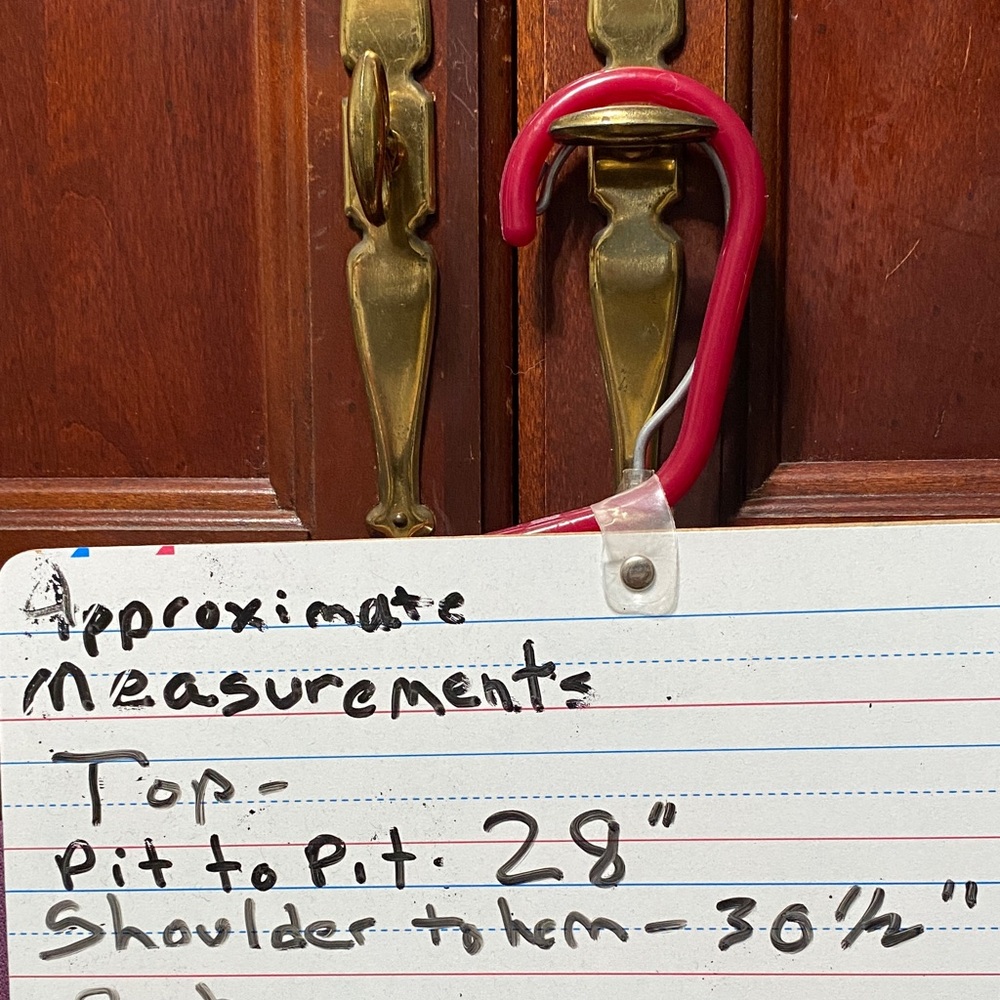 Approximate
Measurements
Top-
Pit to Pit. 28"
Shoulder to hem - 30 1/2"